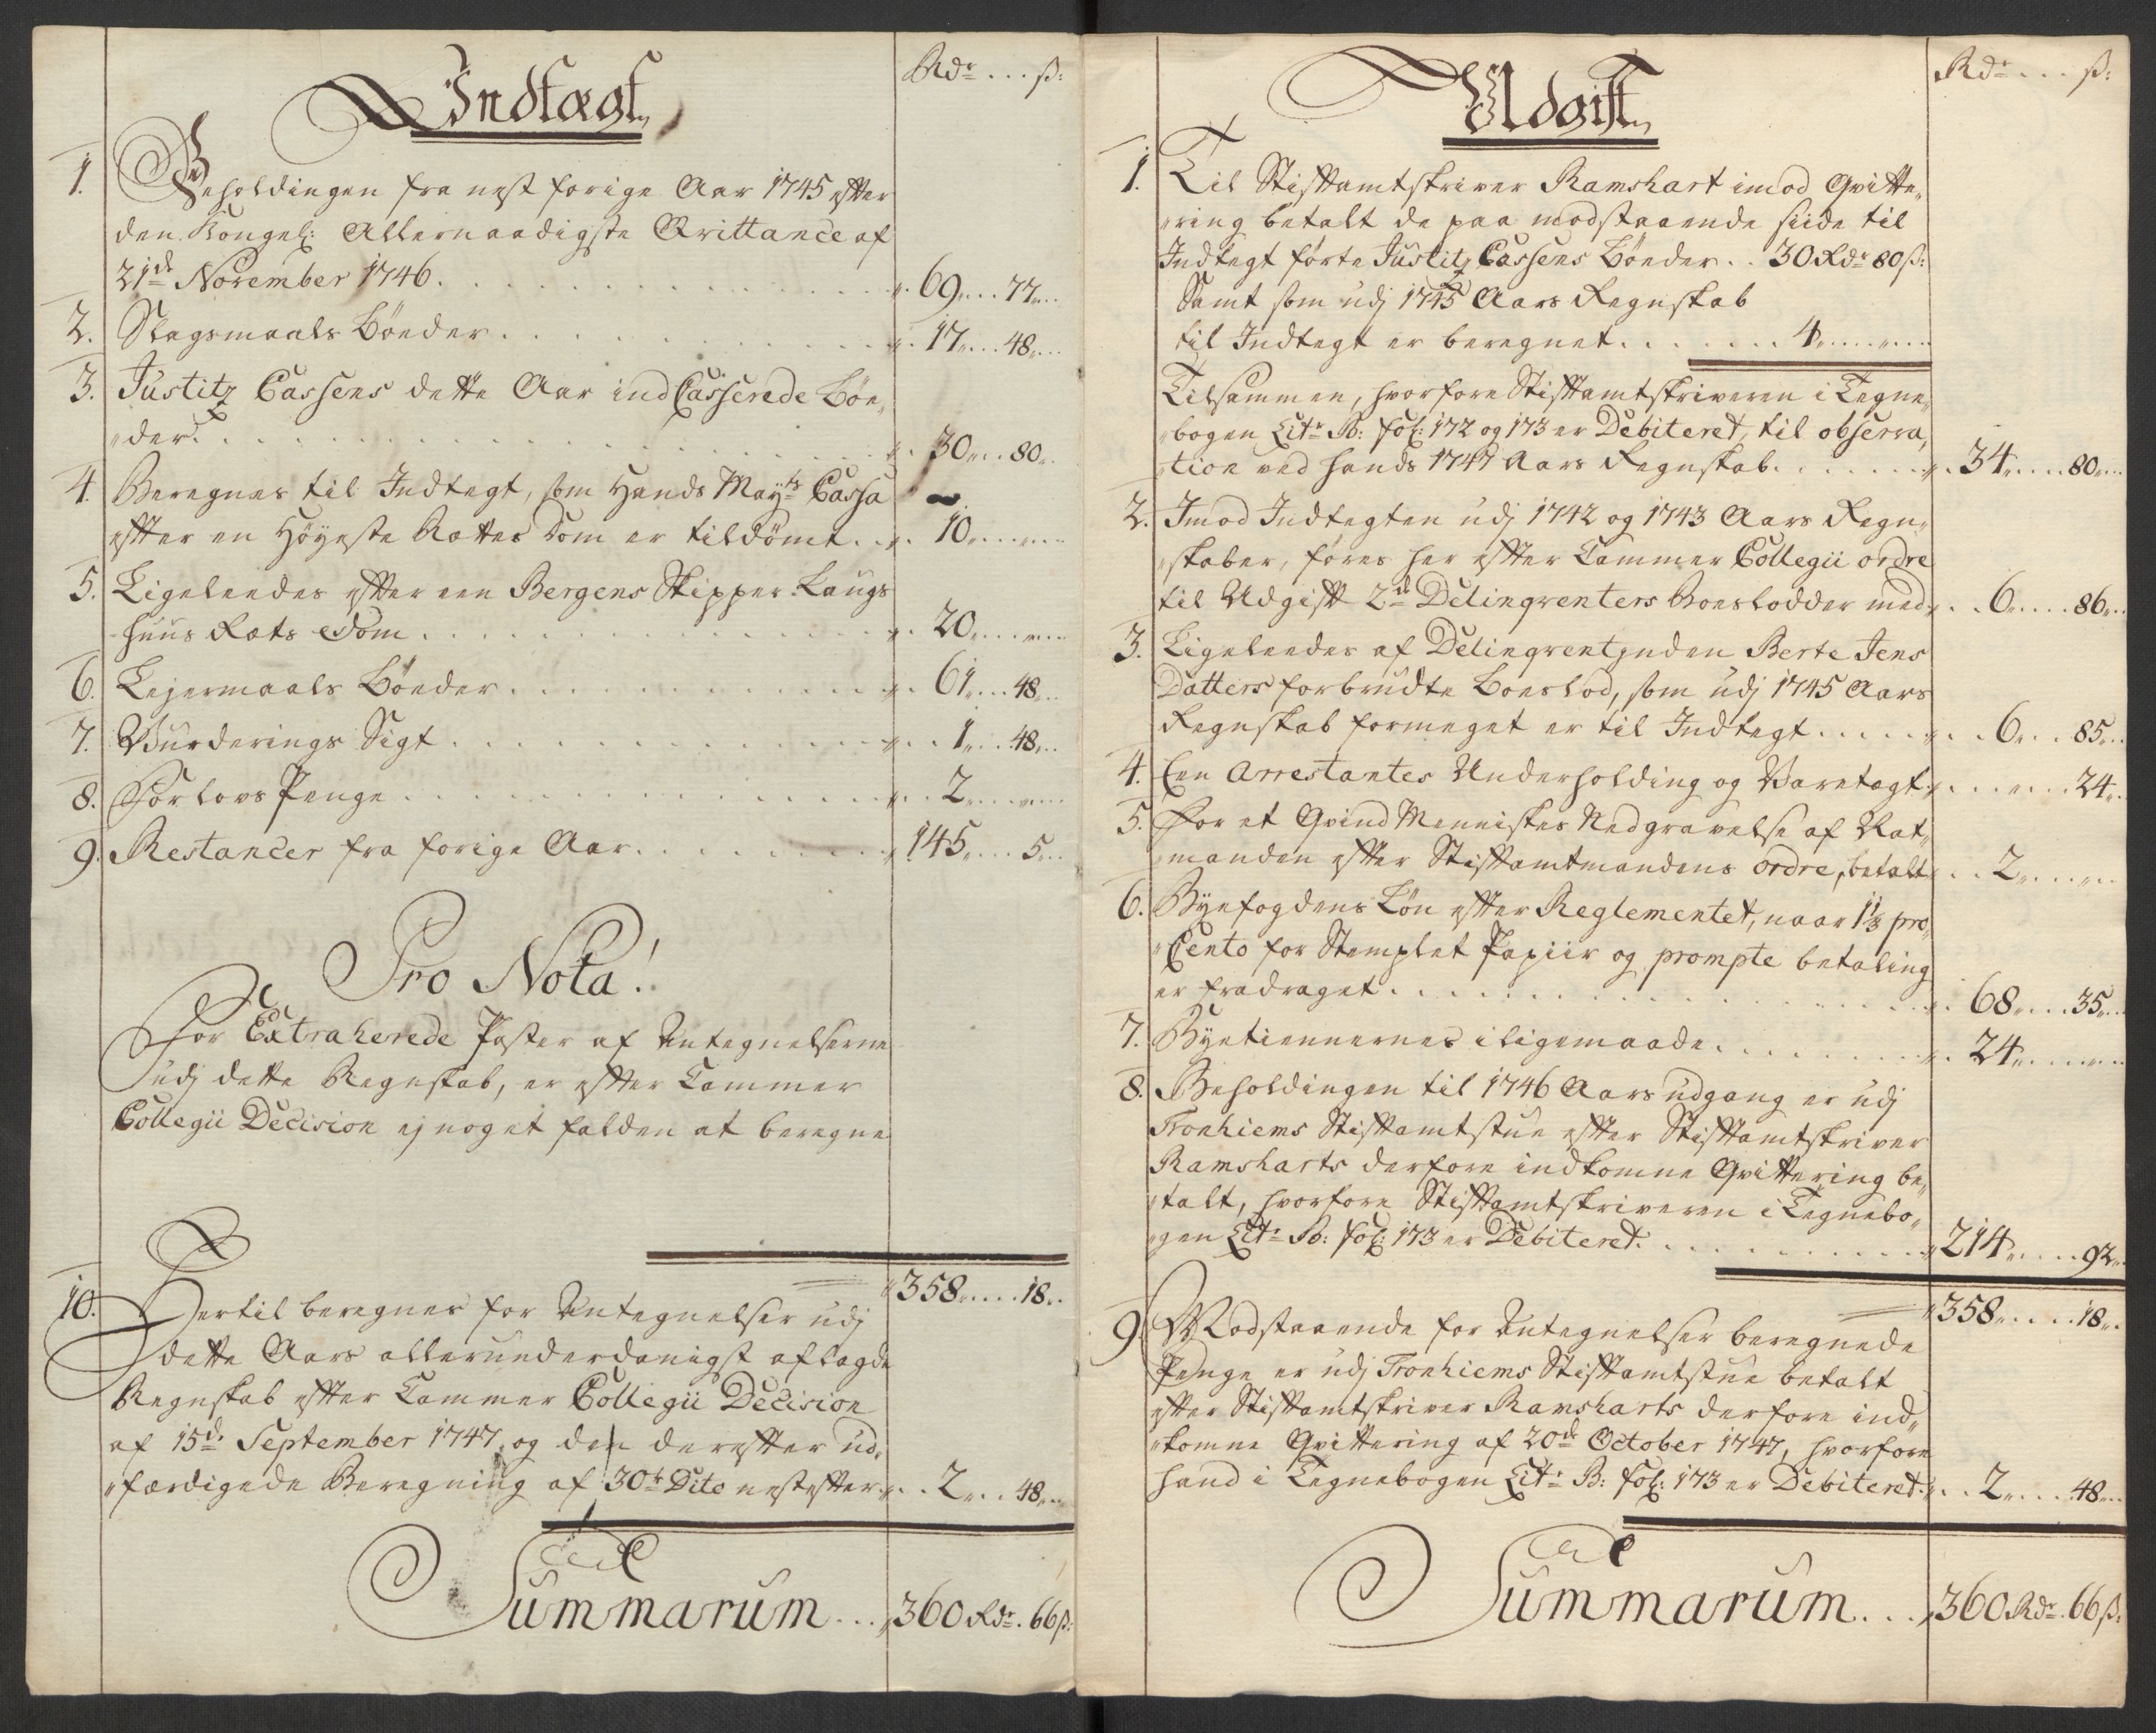 Indtægt
Rdr ... ß:
1. Beholdingen fra nest forige Aar 1745 efter
den Kongel: Allernaadigste Qvittance af
21de November 1746. . . . 69 . . . 77 . .
2. Slagsmaals Bøeder . . . 17 . . . 48 . .
3. Justitz Cassens dette Aar indCasserede Bøe„
„der . . . 30 . . . 80 . .
4. Beregnes til Indtegt, som Hands Mayts Cassa
efter en Høyeste Rettes Dom er tildømt . . 10 . . . „ . .
5. Ligeleedes efter een Bergens Skipper-Laugs
huus Rets Dom . . . 20 . . . „ . .
6. Lejermaals Bøeder . . . 61 . . . 48 . .
7. Vurderings Sigt . . . 1 . . . 48 . .
8. Forlovs Penge . . . 2 . . . „ . .
9. Restancer fra forige Aar . . . 145 . . . 5 . .
Pro Nota!
For Extraherede Poster af Antegnelserne
udj dette Regnskab, er efter Cammer
Collegii Decision ej noget falden at beregne
358 . . . 18 . .
10. Hertil beregnes for Antegnelser udj
dette Aars allerunderdanigst aflagde
Regnskab efter Cammer Collegii Decision
af 15de September 1747, og den derefter ud„
„færdigede Beregning af 30te Dito nestefter . . 2 . . . 48 . .
Summarum . . . 360 Rdr. 66 ß:
Udgift
Rdr ... ß:
1. Til Stiftamtskriver Ramshart imod Qvitte„
„ring betalt de paa modstaaende siide til
Indtegt førte Justitz Cassens Bøeder . . 30 Rdr 80 ß:
Samt som udj 1745 Aars Regnskab
til Indtegt er beregnet . . . 4 . . . „ . .
Tilsammen, hvorfore Stiftamtskriveren i Tegne„
„bogen Litr B: fol: 172 og 173 er Debiteret, til observa„
„tion ved hands 1747 Aars Regnskab . . . 34 . . . 80 . .
2. Imod Indtegten udj 1742 og 1743 Aars Regn„
„skaber, føres her efter Cammer Collegii ordre
til Udgift 2de Delinqventers Boeslodder med . . 6 . . . 86 . .
3. Ligeleedes af Delinqventjnden Berte Jens
Datters forbrudte Boeslod, som udj 1745 Aars
Regnskab formeget er til Indtegt . . . 6 . . . 85 . .
4. Een Arrestantes Underholding og Varetægt . . „ . . . 24 . .
5. For et Qvind Menniskes Nedgravelse af Rat„
„manden efter Stiftamtmandens ordre, betalt . . 2 . . . „ . .
6. Byefogdens Løn efter Reglementet, naar 1⅓ pro„
„Cento for Stemplet Papiir og prompte betaling
er fradraget . . . 68 . . . 35 . .
7. Byetiennernes i ligemaade . . . 24 . . . „ . .
8. Beholdingen til 1746 Aars udgang er udj
Tronhiems Stiftamtstue efter Stiftamtskriver
Ramsharts derfore indkomne Qvittering be„
„talt, hvorfore Stiftamtskriveren i Tegnebo„
„gen Litr B: fol: 173 er Debiteret . . . 214 . . . 92 . .
358 . . . 18 . .
9. Modstaaende for Antegnelser beregnede
Penge er udj Tronhiems Stiftamtstue betalt
efter Stiftamtskriver Ramsharts derfore ind„
„komne Qvittering af 20de October 1747, hvorfore
hand i Tegnebogen Litr B: fol: 173 er Debiteret . . 2 . . . 48 . .
Summarum . . . 360 Rdr. 66 ß: